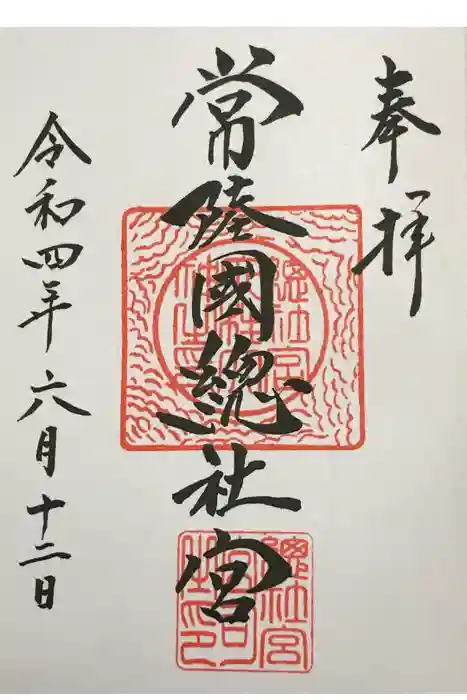 奉拝
常陸國總社宮
令和四年六月十二日
總社宮